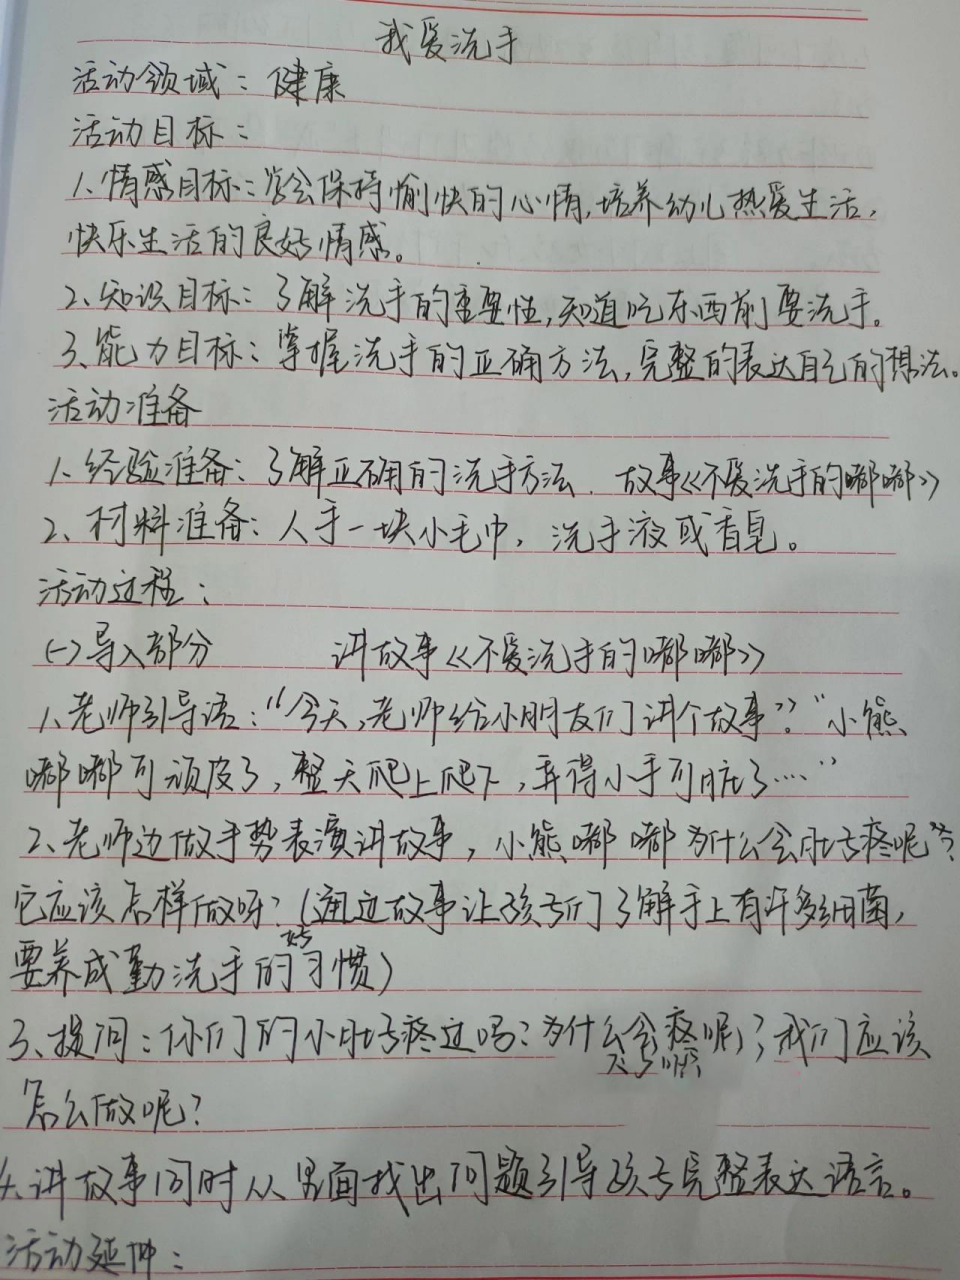 我爱洗手
活动领域：健康
活动目标：
1、情感目标：学会保持愉快的心情，培养幼儿热爱生活，
快乐生活的良好情感。
2、知识目标：了解洗手的重要性，知道吃东西前要洗手。
3、能力目标：掌握洗手的正确方法，完整的表达自己的想法。
活动准备
1、经验准备：了解正确的洗手方法、故事《不爱洗手的嘟嘟》
2、材料准备：人手一块小毛巾，洗手液或香皂。
活动过程：
(一)导入部分 讲故事《不爱洗手的嘟嘟》
1、老师引导语：“今天，老师给小朋友们讲个故事”？“小熊
嘟嘟可顽皮了，整天爬上爬下，弄得小手可脏了····”
2、老师边做手势表演讲故事，小熊嘟嘟为什么会肚子疼呢？
它应该怎样做呀？(通过故事让孩子们了解手上有许多细菌，
要养成勤洗手的好习惯)
3、提问：你们的小肚子疼过吗？为什么会疼呢？我们应该
怎么做呢？
4、讲故事同时从里面找出问题引导孩子完整表达语言。
活动延伸：